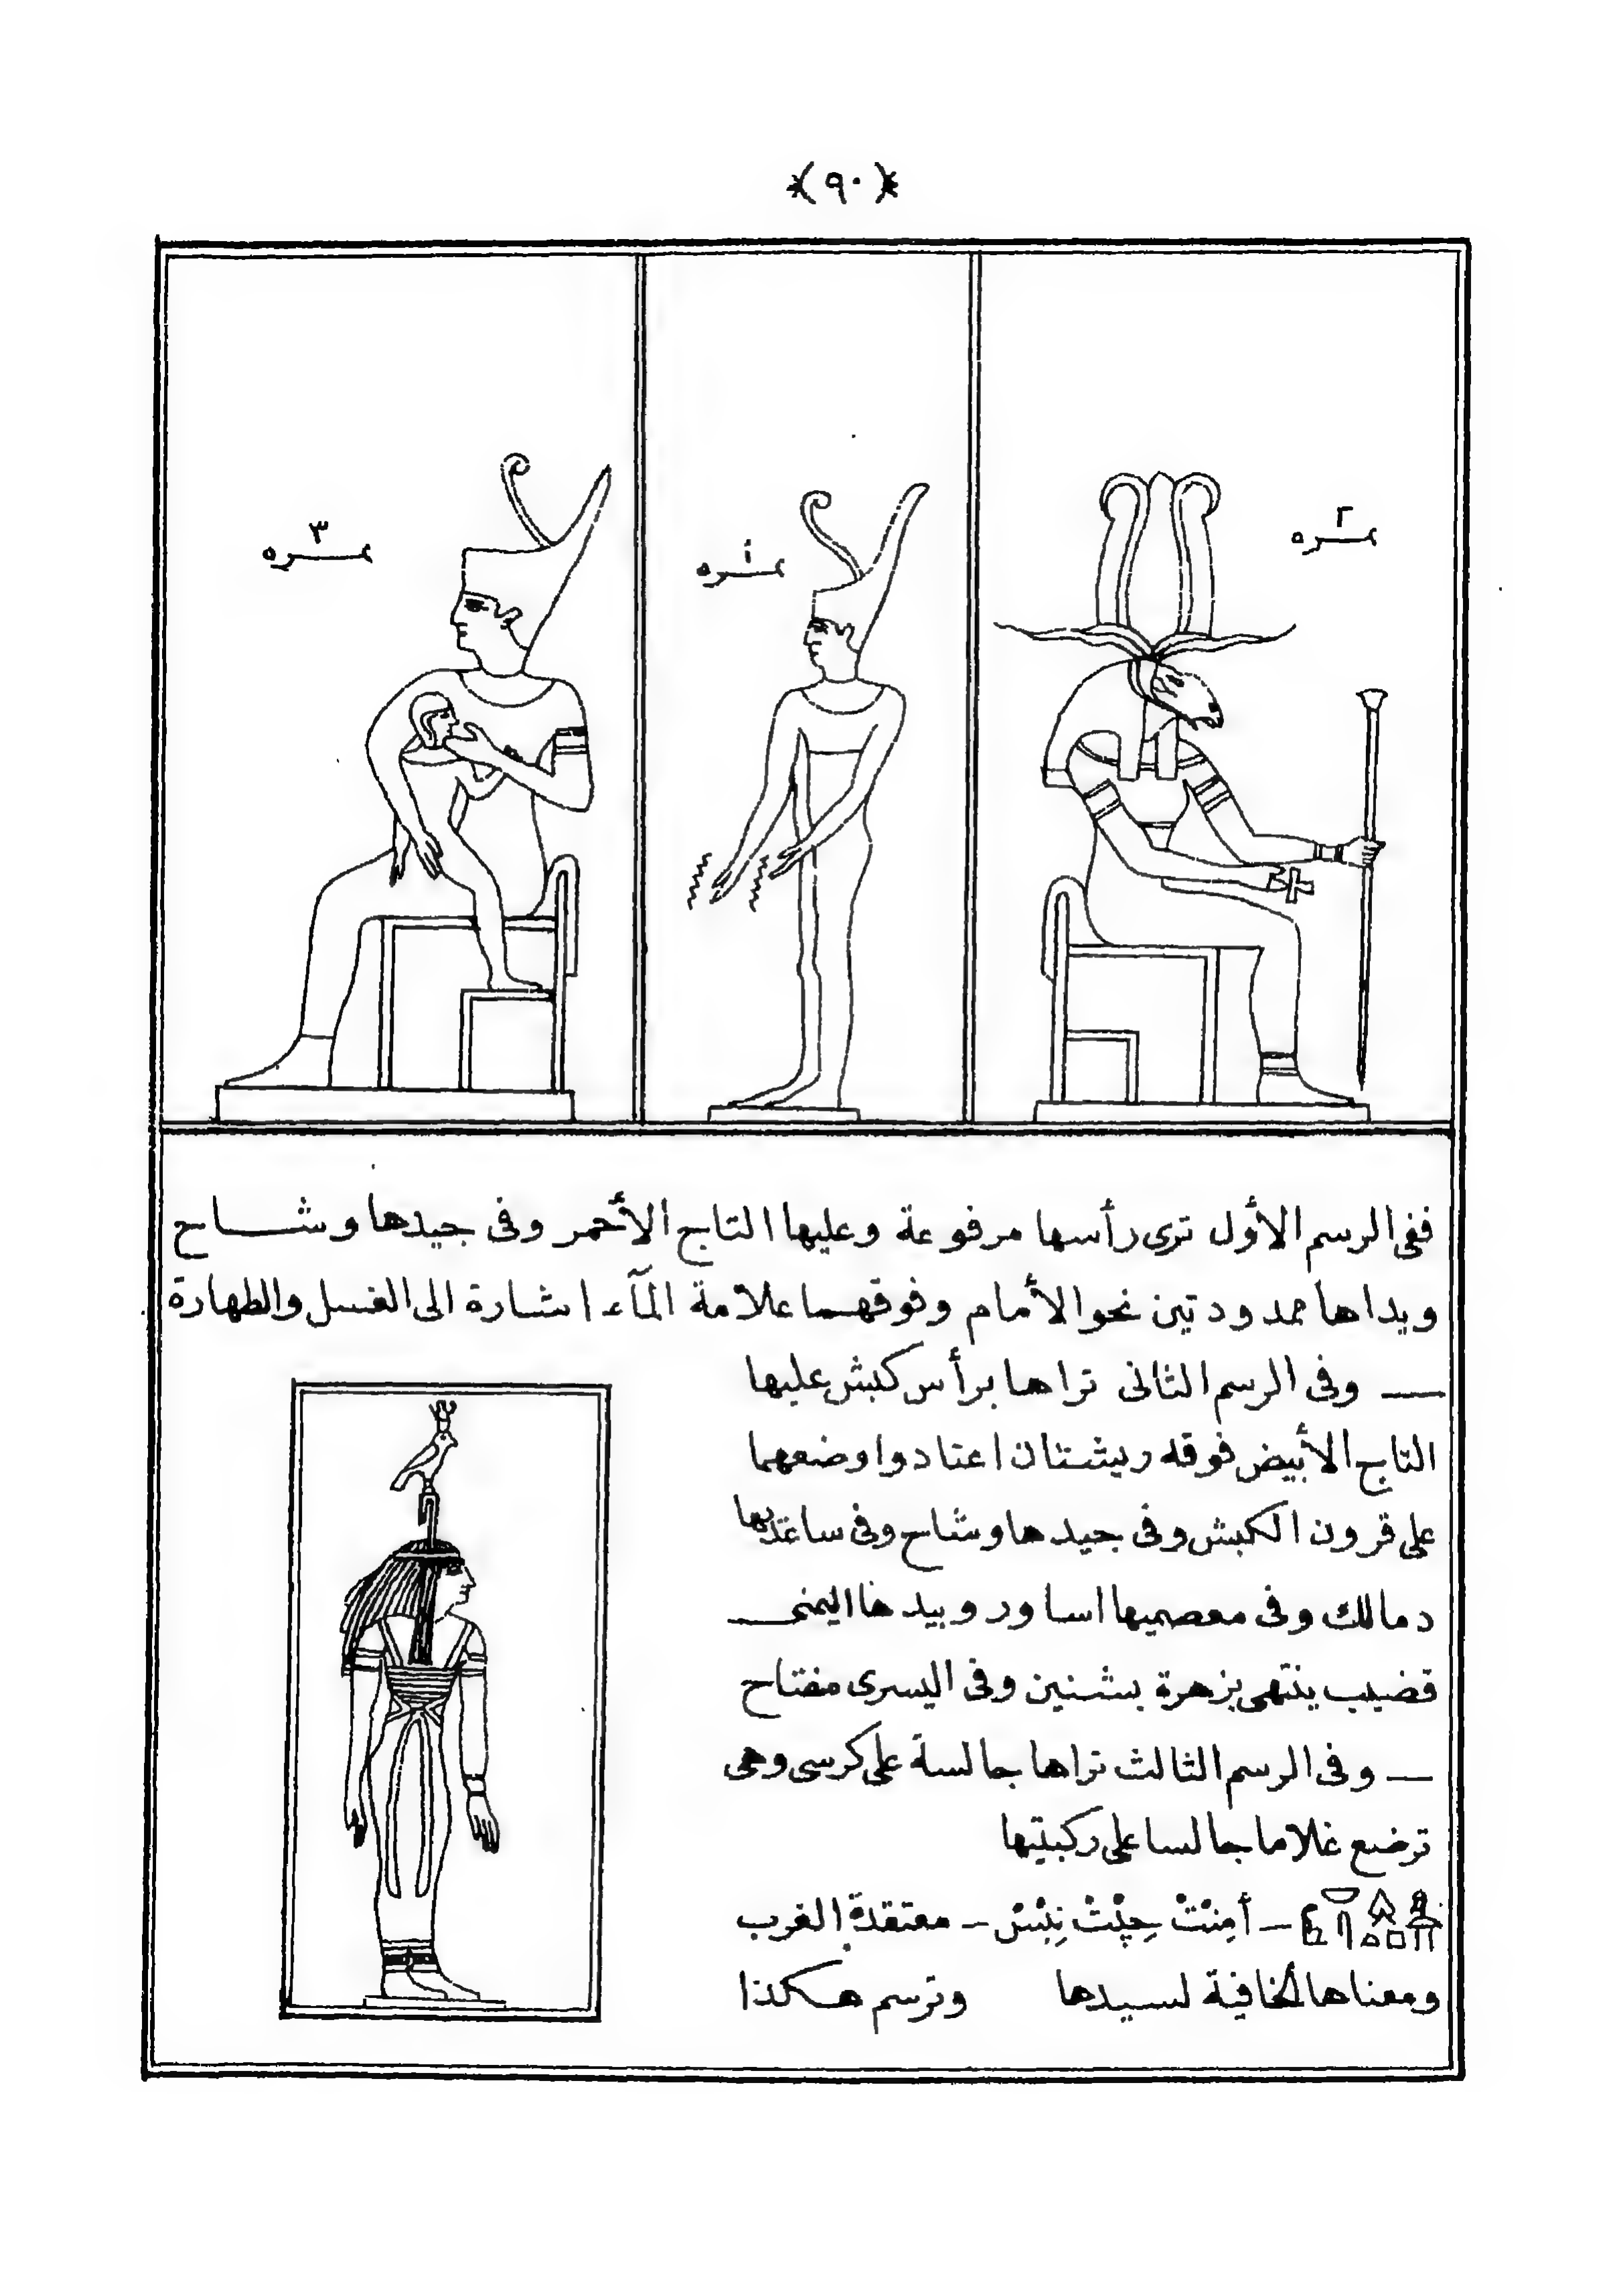 ﴿٩٠﴾
نمره ٢
نمره ١
نمره ٣
ففى الرسم الأوّل ترى رأسها مرفوعة وعليها التاج الأحمر وفى جيدها وشاح
ويداها ممدودتين نحو الأمام وفوقهما علامة المآء اشارة الى الغسل والطهارة
— وفى الرسم الثانى تراها برأس كبش عليها
التاج الأبيض فوقه ريشتان اعتادوا وضعهما
على قرون الكبش وفى جيدها وشاح وفى ساعديها
دمالك وفى معصميها اساور وبيدها اليمنى
قضيب ينتهى بزهرة بشنين وفى اليسرى مفتاح
— وفى الرسم الثالث تراها جالسة على كرسى وهى
ترضع غلاما جالسا على ركبيتها
— أمِنْتْ حِپْتْ نِبْسْ – معتقدة الغرب
ومعناها الخافية لسيدها وترسم هكذا